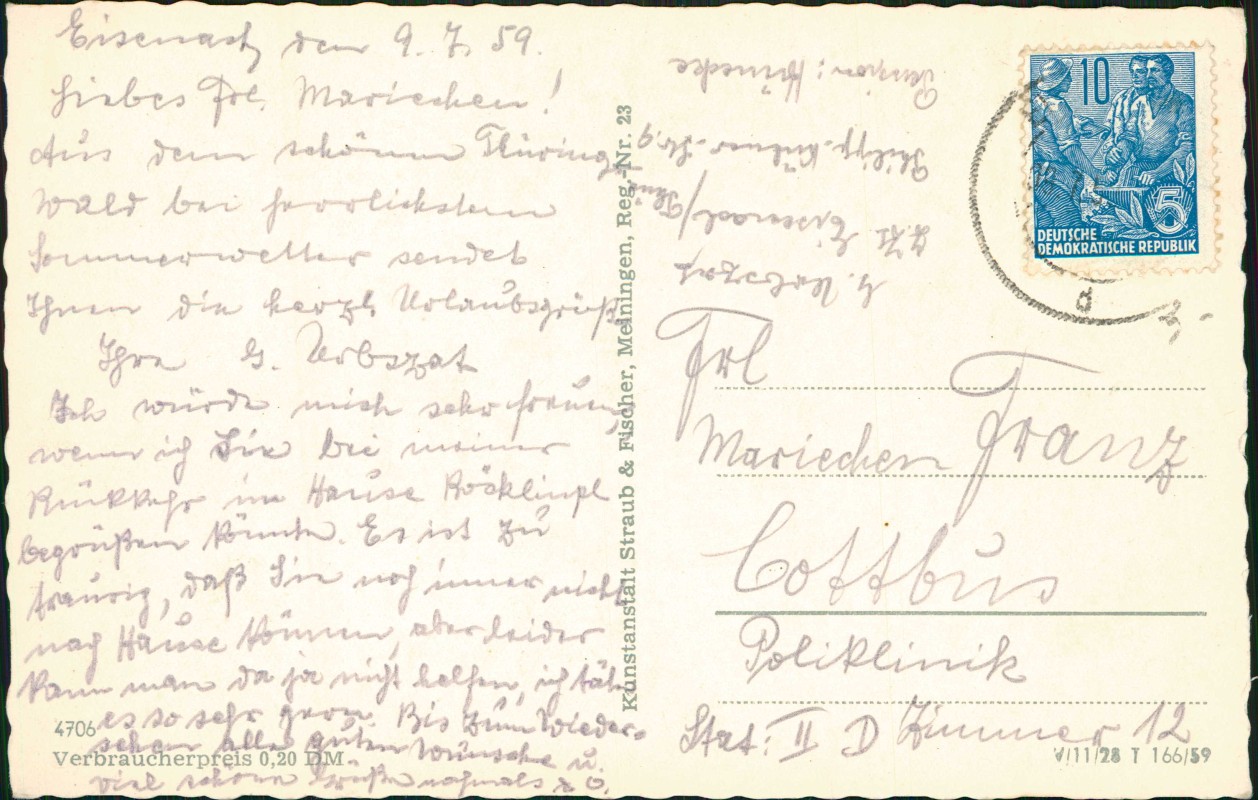 Eisenach, den 9. 7. 59.
Liebes Frl. Mariechen!
Aus dem schönen Thüringer
Wald bei herrlichstem
Sommerwetter sendet
Ihnen die herzl. Urlaubsgrüße
Ihre G. Urbszat
Ich würde mich sehr freuen,
wenn ich Sie bei meiner
Rückkehr im Hause
begrüßen könnte. Es ist zu
traurig, daß Sie noch immer nicht
nach Hause können, aber leider
kann man da ja nicht helfen, ich täte
es so sehr gern. Bis zum Wieder-
sehen alles guten Wünsche u.
viel schöne Grüße nochmals
4706
Verbraucherpreis 0,20 DM
Kunstanstalt Straub & Fischer, Meiningen, Reg.-Nr. 23
G. Urbszat
z. Zt. Eisenach/Thür.
Philipp-Kühner-Str. 9
Pension:
10
5
DEUTSCHE
DEMOKRATISCHE REPUBLIK
d
Frl
Mariechen Franz
Cottbus
Poliklinik
Stat: II D Zimmer 12
V/11/28 T 166/59